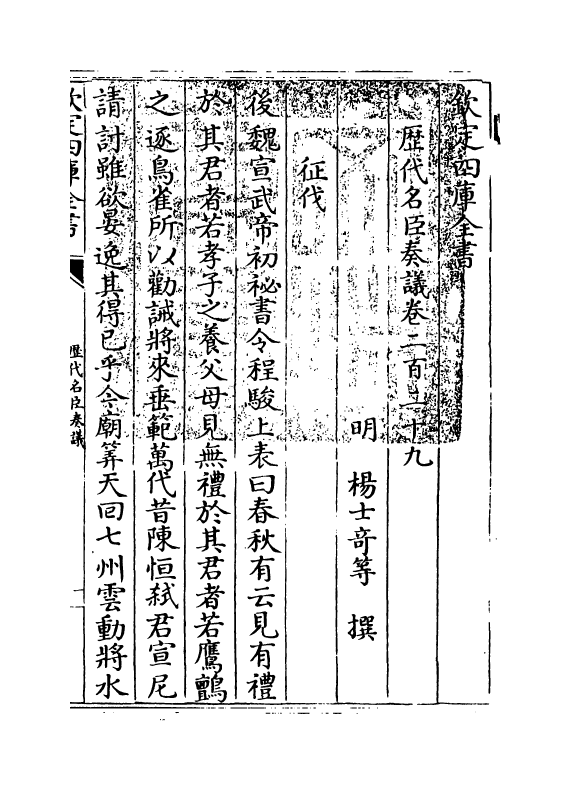 欽定四庫全書
歴代名臣奏議卷二百二十九
明 楊士竒等 撰
征伐
後魏宣武帝初祕書令程駿上表曰春秋有云見有禮
於其君者若孝子之養父母見無禮於其君者若鷹鸇
之逐鳥雀所以勸誡將來垂範萬代昔陳恒弑君宣尼
請討雖欲晏逸其得已乎今廟筭天回七州雲動將水
欽定四庫全書
歴代名臣奏議